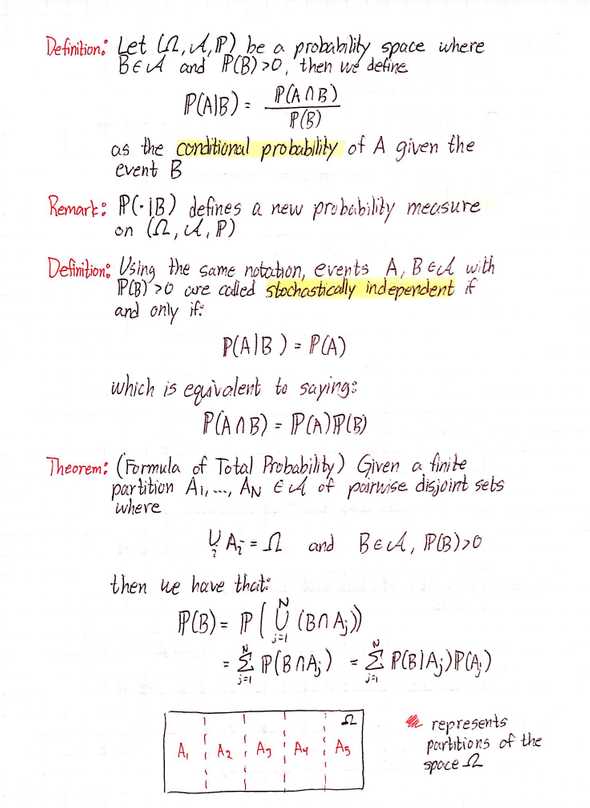 Definition: Let (Ω, 𝒜, ℙ) be a probability space where
B ∈ 𝒜 and ℙ(B) > 0, then we define
ℙ(A|B) = ℙ(A ∩ B) / ℙ(B)
as the conditional probability of A given the
event B
Remark: ℙ(·|B) defines a new probability measure
on (Ω, 𝒜, ℙ)
Definition: Using the same notation, events A, B ∈ 𝒜 with
ℙ(B) > 0 are called stochastically independent if
and only if:
ℙ(A|B) = ℙ(A)
which is equivalent to saying:
ℙ(A ∩ B) = ℙ(A)ℙ(B)
Theorem: (Formula of Total Probability) Given a finite
partition A₁, ..., A_N ∈ 𝒜 of pairwise disjoint sets
where
⋃_i A_i = Ω and B ∈ 𝒜, ℙ(B) > 0
then we have that:
ℙ(B) = ℙ(⋃_{j=1}^{N} (B ∩ A_j))
= ∑_{j=1}^{N} ℙ(B ∩ A_j) = ∑_{j=1}^{N} ℙ(B|A_j)ℙ(A_j)
Ω
A₁ A₂ A₃ A₄ A₅
represents
partitions of the
space Ω